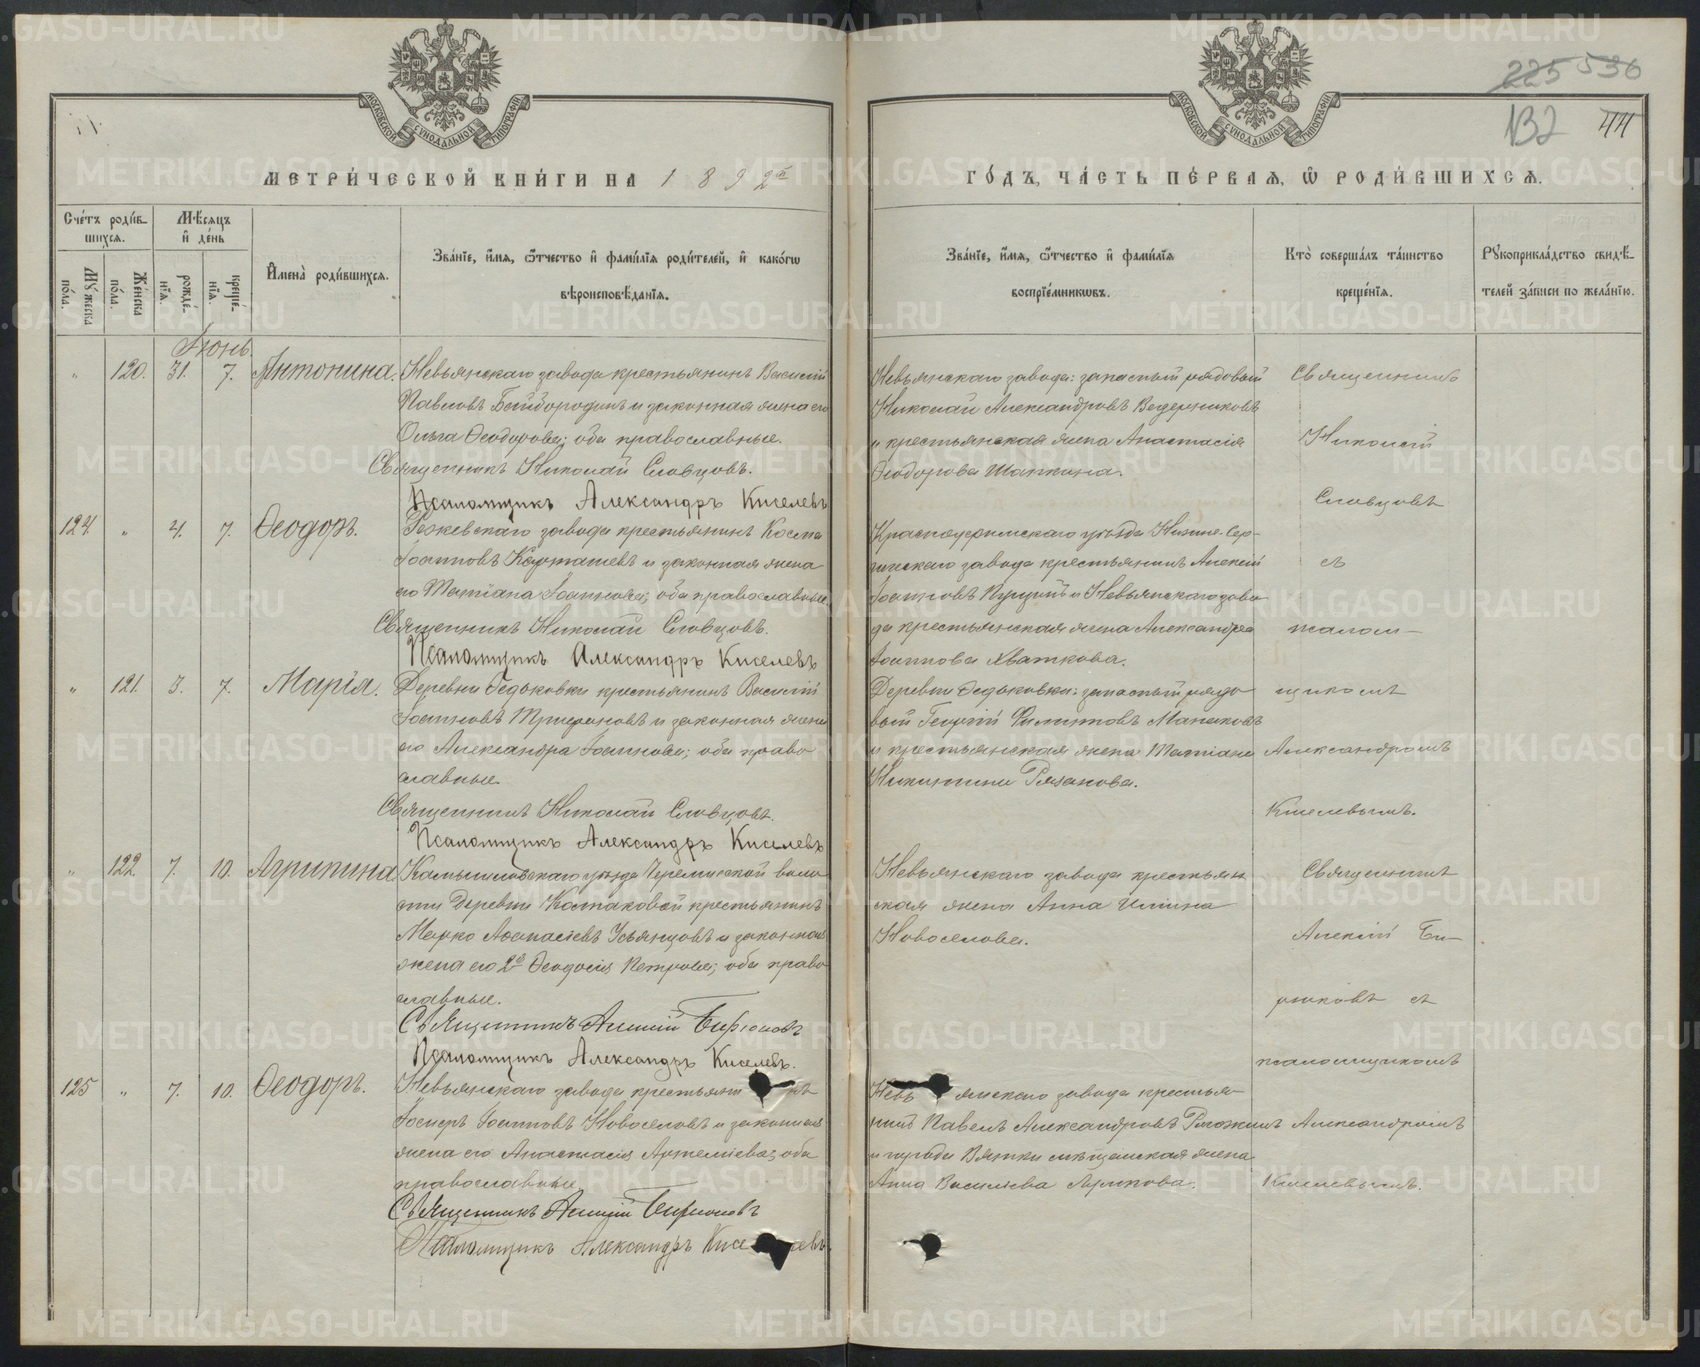 225 536
132 44
МОСКОВСКОЙ СѴНОДАЛЬНОЙ ТИПОГРАФІИ
МОСКОВСКОЙ СѴНОДАЛЬНОЙ ТИПОГРАФІИ
МЕТРИ́ЧЕСКОЙ КНИ́ГИ НА 1892й
ГО́ДЪ, ЧА́СТЬ ПЕ́РВАЯ, Ѡ РОДИ́ВШИХСЯ.
Сче́тъ роди́в-
шихся.
Мꙋ́жеска по́ла.
Же́нска по́ла.
Мѣ́сяцъ
и҆ де́нь
рожде́-
нїя.
креще́-
нїя.
И҆мена̀ роди́вшихся.
Зва́нїе, и҆́мя, ѻ҆́тчество и҆ фами́лїя роди́телей, и҆ како́гѡ
вѣроисповѣ́данїя.
Зва́нїе, и҆́мя, ѻ҆́тчество и҆ фами́лїя
воспрїе́мникѡвъ.
Кто̀ соверша́лъ та́инство
креще́нїя.
Рꙋкоприкла́дство свидѣ́-
телей за́писи по жела́нїю.
Іюнь.
„ 120. 31. 7. Антонина.
Невьянскаго завода крестьянинъ Василій
Павловъ Бейбородинъ и законная жена его
Ольга Ѳеодорова; оба православные.
Священникъ Николай Словцовъ.
Псаломщикъ Александръ Киселевъ
Невьянскаго завода: запасный рядовой
Николай Александровъ Ведерниковъ
и крестьянская жена Анастасія
Ѳеодорова Шапкина.
Священникъ
Николай
Словцовъ
124 „ 4. 7. Ѳеодоръ.
Режевскаго завода крестьянинъ Косма
Іоанновъ Карташевъ и законная жена
его Татіана Іоаннова; оба православные.
Священникъ Николай Словцовъ.
Псаломщикъ Александръ Киселевъ
Красноуфимскаго уѣзда Нижне-Сер-
гинскаго завода крестьянинъ Алексій
Іоанновъ и Невьянскаго заво-
да крестьянская жена Александра
Іоаннова Хваткова.
съ
псалом-
„ 121. 3. 7. Марія.
Деревни Ѳедьковки крестьянинъ Василій
Іоанновъ Трифановъ и законная жена
его Александра Іоаннова; оба право-
славные.
Священникъ Николай Словцовъ.
Псаломщикъ Александръ Киселевъ
Деревни Ѳедьковки: запасный рядо-
вой Георгій Филипповъ Маньковъ
и крестьянская жена Татіана
Никитина Рязанова.
щикомъ
Александромъ
Киселевымъ.
„ 122. 7. 10. Агрипина
Камышловскаго уѣзда Черемисской воло-
сти Деревни Костаковой крестьянинъ
Марко Аѳанасіевъ Усьянцовъ и законная
жена его 2я Ѳеодосія Петрова; оба право-
славные.
Священникъ Алексій Бирюковъ
Псаломщикъ Александръ Киселевъ.
Невьянскаго завода крестьян-
ская жена Анна Ильина
Новоселова.
Священникъ
Алексій Би-
рюковъ съ
псаломщикомъ
125 „ 7. 10. Ѳеодоръ.
Невьянскаго завода крестьян
Іосифъ Іоанновъ Новоселовъ и законная
жена его Анастасія Артеміева; оба
православные.
Священникъ Алексій Бирюковъ
Псаломщикъ Александръ Киселевъ.
Невьянскаго завода крестья-
нинъ Павелъ Александровъ
и города Вятки мѣщанская жена
Анна Васильева
Александромъ
Киселевымъ.
METRIKI.GASO-URAL.RU